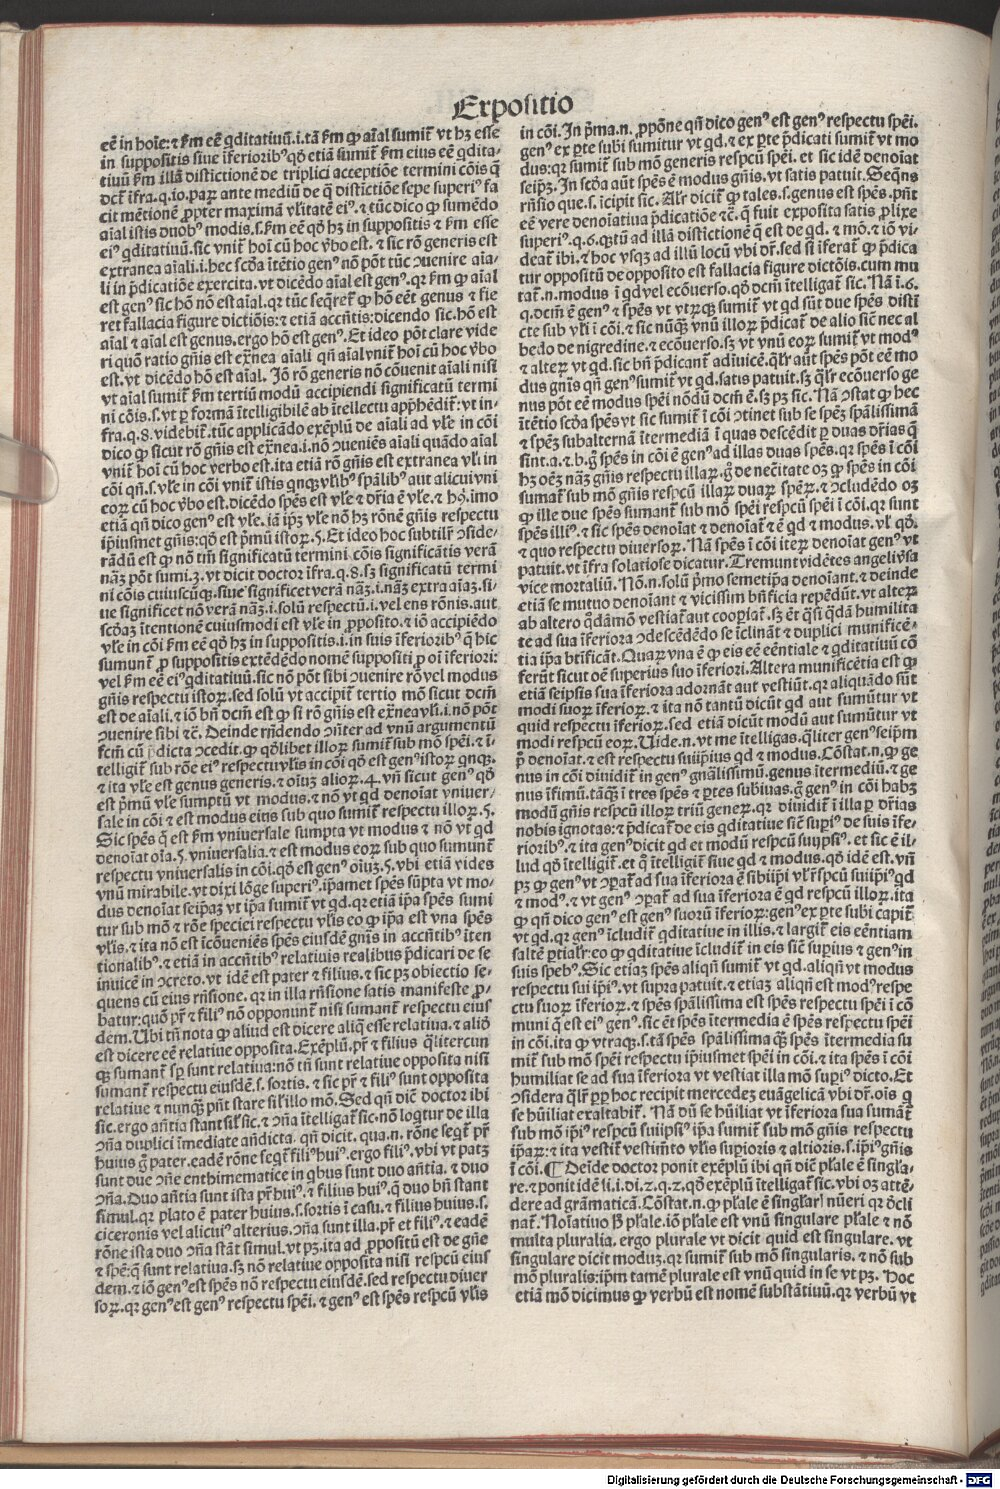 Expositio
eē in hoīe: ⁊ ẜm eē qditatiuū .i. tā ẜm ꝙ aīal sumiť vt hꝫ esse
in suppositis siue īferioribꝰ qō etiā sumiť ẜm eius eē qdita-
tiuū ẜm illā distinctionē de triplici acceptiōe termini cōis q̄
cit mētionē ꝓpter maximā vl̓itatē eiꝰ. ⁊ tūc dico ꝙ sumēdo
aīal istis duobꝰ modis .s. ẜm eē qō hꝫ in suppositis ⁊ ẜm esse
eiꝰ qditatiuū. sic vniť hoī cū hoc ṽbo est. ⁊ sic rō generis est
extranea aīali .i. hec scōa ītētio genꝰ nō pōt tūc ↄuenire aīa-
li in p̄dicatiōe exercita. vt dicēdo aīal est genꝰ. qꝛ ẜm ꝙ aīal
est genꝰ sic hō nō est aīal. qꝛ tūc seq̄reť ꝙ hō eēt genus ⁊ fie
ret fallacia figure dictiōis: ⁊ etiā accn̄tis: dicendo sic. hō est
aīal ⁊ aīal est genus. ergo hō est genꝰ. Et ideo pōt clare vide
ri quō ratio gn̄is est ex̄nea aīali qn̄ aīal vniť hoī cū hoc ṽbo
est. vt dicēdo hō est aīal. Iō rō generis nō cōuenit aīali nisi
vt aīal sumiť ẜm tertiū modū accipiendi significatū termi
ni cōis .s. vt ꝑ formā ītelligibilē ab ītellectu app̄hēdiť: vt in-
fra .q. 8. videbiť. tūc applicādo exēplū de aīali ad vl̓e in cōi
dico ꝙ sicut rō gn̄is est ex̄nea .i. nō ↄueniēs aīali quādo aīal
vniť hoī cū hoc verbo est. ita etiā rō gn̄is est extranea vl̓i in
cōi qn̄ .s. vl̓e in cōi vniť istis qnqꝫ vl̓ibꝰ spālibꝰ aut alicui vni
eoꝝ cū hoc ṽbo est. dicēdo spēs est vl̓e ⁊ dr̄ia ē vl̓e. ⁊ hꝰ. imo
etiā qn̄ dico genꝰ est vl̓e. iā ip̄ꝫ vl̓e nō hꝫ rōnē gn̄is respectu
ip̄iusmet gn̄is: qō est p̄mū istoꝝ .5. Et ideo hoc subtilr̄ ↄside-
rādū est ꝙ nō tm̄ significatū termini cōis significātis verā
nāꝫ pōt sumi .3. vt dicit doctor īfra .q. 8. sꝫ significatū termi
ni cōis cuiuscūqꝫ. siue significet verā nāꝫ .i. nāꝫ extra aīaꝫ. si-
ue significet nō verā nāꝫ .i. solū respectū .i. vel ens rōnis. aut
scōaꝫ ītentionē cuiusmodi est vl̓e in ꝓposito. ⁊ iō accipiēdo
vl̓e in cōi ẜm eē qō hꝫ in suppositis .i. in suis īferioribꝰ q̄ hic
sumunť ꝓ suppositis extēdēdo nomē suppositi ꝓ oī īferiori:
vel ẜm eē eiꝰ qditatiuū. sic nō pōt sibi ↄuenire rō vel modus
gn̄is respectu istoꝝ. sed solū vt accipiť tertio mō sicut dcm̄
est de aīali. ⁊ iō bn̄ dcm̄ est ꝙ si rō gn̄is est ex̄nea vl̓i .i. nō pōt
ↄuenire sibi ⁊c̄. Deinde rn̄dendo ↄn̄ter ad vnū argumentū
fcm̄ cū p̄dicta ↄcedit. ꝙ qōlibet illoꝝ sumiť sub mō spēi. ⁊ ī-
telligiť sub rōe eiꝰ respectu vl̓is in cōi qō est genꝰ istoꝝ qnqꝫ.
⁊ ita vl̓e est genus generis. ⁊ oīuꝫ alioꝝ .4. vn̄ sicut genꝰ qō
est p̄mū vl̓e sumptū vt modus. ⁊ nō vt qd denoīat vniuer-
sale in cōi ⁊ est modus eius sub quo sumiť respectu illoꝝ .5.
Sic spēs q̄ est ẜm vniuersale sumpta vt modus ⁊ nō vt qd
denoīat oīa .5. vniuersalia. ⁊ est modus eoꝝ sub quo sumunť
respectu vniuersalis in cōi. qō est genꝰ oīuꝫ .5. vbi etiā vides
vnū mirabile. vt dixi lōge superiꝰ. ip̄amet spēs sūpta vt mo-
dus denoīat seip̄aꝫ vt ip̄a sumiť vt qd. qꝛ etiā ip̄a spēs sumi
tur sub mō ⁊ rōe speciei respectu vl̓is eo ꝙ ip̄a est vna spēs
vl̓is. ⁊ ita nō est īcōueniēs spēs eiusdē gn̄is in accn̄tibꝰ īten
tionalibꝰ. ⁊ etiā in accn̄tibꝰ relatiuis realibus p̄dicari de se
inuicē in ↄcreto. vt idē est pater ⁊ filius. ⁊ sic pꝫ obiectio se-
quens cū eius rn̄sione. qꝛ in illa rn̄sione satis manifeste ꝓ-
batur: quō pr̄ ⁊ filiꝰ nō opponunť nisi sumanť respectu eius
dem. Ubi tn̄ nota ꝙ aliud est dicere aliq̄ esse relatiua. ⁊ aliō
est dicere eē relatiue opposita. Exēplū. pr̄ ⁊ filius qlitercun
qꝫ sumanť sp̄ sunt relatiua: nō tn̄ sunt relatiue opposita nisi
sumanť respectu eiusdē .s. sortis. ⁊ sic pr̄ ⁊ filiꝰ sunt opposita
relatiue ⁊ nunqꝫ̄ pn̄t stare sil̓ illo mō. Sed qn̄ dic̄ doctor ibi
sic. ergo an̄tia stant sil̓ sic. ⁊ ↄn̄a ītelligať sic. nō loqtur de illa
ↄn̄a duplici īmediate an̄dicta. qn̄ dicit. qua .n. rōne seqť pr̄
huius g̊ pater. eadē rōne seqť filiꝰ huiꝰ. ergo filiꝰ. vbi vt patꝫ
sunt due ↄn̄e enthimematice in qbus sunt duo an̄tia. ⁊ duo
ↄn̄a. Duo an̄tia sunt ista pr̄ huiꝰ. ⁊ filius huiꝰ. q̄ duo bn̄ stant
simul. qꝛ plato ē pater huius .s. sortis ī casu. ⁊ filius huius .s.
ciceronis vel alicuiꝰ alterius. ↄn̄a sunt illa. pr̄ et filiꝰ. ⁊ eadē
rōne ista duo ↄn̄a stāt simul. vt pꝫ. ita ad ꝓpositū est de gn̄e
⁊ spē: q̄ sunt relatiua. sꝫ nō relatiue opposita nisi respcū eius
dem. ⁊ iō genꝰ est spēs nō respectu eiusdē. sed respectu diuer
soꝝ. qꝛ genꝰ est genꝰ respectu spēi. ⁊ genꝰ est spēs respcū vl̓is
in cōi. In p̄ma .n. ꝓpōne qn̄ dico genꝰ est genꝰ respectu spēi.
genꝰ ex ꝑte subī sumitur vt qd. ⁊ ex ꝑte p̄dicati sumiť vt mo
dus: qꝛ sumiť sub mō generis respcū spēi. et sic idē denoīat
seip̄ꝫ. In scōa aūt spēs ē modus gn̄is. vt satis patuit. Seqn̄s
rn̄sio que .s. īcipit sic. Alr̄ diciť ꝙ tales .s. genus est spēs. pn̄t
eē vere denoīatiua p̄dicatiōe ⁊c̄. q̄ fuit exposita satis ꝓlixe
superiꝰ .q. 6. qꝫtū ad illā distinctionē q̄ est de qd. ⁊ mō. ⁊ iō vi-
deať ibi. ⁊ hoc vsqꝫ ad illū locū vbi dr̄. sed si īferať ꝙ p̄dica
tur oppositū de opposito est fallacia figure dictōis. cum mu
tať .n. modus ī qd vel ecōuerso. qō dcm̄ ītelligať sic. Nā .i. 6.
q. dcm̄ ē genꝰ ⁊ spēs vt vtrꝫqꝫ sumiť vt qd sūt due spēs disti
cte sub vl̓i ī cōi. ⁊ sic nūqꝫ̄ vnū illoꝝ p̄dicať de alio sic̄ nec al
bedo de nigredine. ⁊ ecōuerso. sꝫ vt vnū eoꝝ sumiť vt modꝰ
⁊ alteꝝ vt qd. sic bn̄ p̄dicanť adīuicē. qlr̄ aūt spēs pōt eē mo
dus gn̄is qn̄ genꝰ sumiť vt qd. satis patuit. sꝫ qlr̄ ecōuerso ge
nus pōt eē modus spēi nōdū dcm̄ ē. sꝫ pꝫ sic. Nā ↄstat ꝙ hec
ītētio scōa spēs vt sic sumiť ī cōi ↄtinet sub se spēꝫ spālissimā
⁊ spēꝫ subalternā ītermediā ī quas descēdit ꝑ duas dr̄ias q̄
sint .a. ⁊ .b. g̊ spēs in cōi ē genꝰ ad illas duas spēs. qꝛ spēs ī cōi
hꝫ oēꝫ nāꝫ gn̄is respectu illaꝝ. g̊ de necītate oꝫ ꝙ spēs in cōi
sumať sub mō gn̄is respcū illaꝝ duaꝝ spēꝝ. ⁊ ↄcludēdo oꝫ
ꝙ ille due spēs sumanť sub mō spēi respcū spēi ī cōi. qꝛ sunt
spēs illiꝰ. ⁊ sic spēs denoīat ⁊ denoīať ⁊ ē qd ⁊ modus. vl̓ qō.
⁊ quo respectu diuersoꝝ. Nā spēs ī cōi iteꝝ denoīat genꝰ vt
patuit. vt īfra solatiose dicatur. Tremunt vidētes angeli ṽsa
vice mortaliū. Nō .n. solū p̄mo semetip̄a denoīant. ⁊ deinde
etiā se mutuo denoīant ⁊ vicissim bn̄ficia repēdūt. vt alteꝝ
ab altero qdāmō vestiať aut cooꝑiať. sꝫ ēt qsi qdā humilita
te ad sua īferiora ↄdescēdēdo se īclināt ⁊ duplici munificē-
tia ip̄a btīficāt. Quaꝝ vna ē ꝙ eis eē eēntiale ⁊ qditatiuū cō
ferūt sicut oē superius suo īferiori. Altera munificētia est ꝙ
etiā seipsis sua īferiora adornāt aut vestiūt. qꝛ aliquādo sūt
modi suoꝝ īferioꝝ. ⁊ ita nō tantū dicūt qd aut sumūtur vt
quid respectu īferioꝝ. sed etiā dicūt modū aut sumūtur vt
modi respcū eoꝝ. Uide .n. vt me ītelligas. qliter genꝰ seip̄m
p̄ denoīat. ⁊ est respectu suiip̄ius qd ⁊ modus. Cōstat .n. ꝙ ge
nus in cōi diuidiť in genꝰ gn̄alissimū. genus ītermediū. ⁊ ge
nus īfimū. tāqꝫ̄ ī tres spēs ⁊ ꝑtes subīuas. g̊ genꝰ in cōi habꝫ
modū gn̄is respcū illoꝝ triū geneꝝ. qꝛ diuidiť ī illa ꝑ dr̄ias
nobis ignotas: ⁊ p̄dicať de eis qditatiue sic̄ supiꝰ de suis īfe-
rioribꝰ. ⁊ ita genꝰ dicit qd et modū respcū suiipsiꝰ. et sic ē il-
lud qō ītelligiť. et q̄ ītelligiť siue qd ⁊ modus. qō idē est. vn̄
pꝫ ꝙ genꝰ vt ↄꝑať ad sua īferiora ē sibiip̄i vl̓r̄ respcū suiip̄iꝰ qd
⁊ modꝰ. ⁊ vt genꝰ ↄꝑať ad sua īferiora ē qd respcū illoꝝ. ita
ꝙ qn̄ dico genꝰ est genꝰ suorū īferioꝝ: genꝰ ex ꝑte subī capiť
vt qd. qꝛ genꝰ īcludiť qditatiue in illis. ⁊ largiť eis eēntiam
saltē ꝑtialr̄: eo ꝙ qditatiue īcludiť in eis sic̄ supīus ⁊ genꝰ in
suis spebꝰ. Sic etiaꝫ spēs aliqn̄ sumiť vt qd. aliqn̄ vt modus
respectu sui ip̄iꝰ. vt supra patuit. ⁊ etiaꝫ aliqn̄ est modꝰ respe
ctu suoꝝ īferioꝝ. ⁊ spēs spālissima est spēs respectu spēi ī cō
muni q̄ est eiꝰ genꝰ. sic ēt spēs ītermedia ē spēs respectu spēi
in cōi. ita ꝙ vtraqꝫ .s. tā spēs spālissima qꝫ̄ spēs ītermedia su
miť sub mō spēi respectu ip̄iusmet spēi in cōi. ⁊ ita spēs ī cōi
humiliat se ad sua īferiora vt vestiat illa mō supiꝰ dicto. Et
ↄsidera qlr̄ ꝓꝑ hoc recipit mercedeꝫ euāgelicā vbi dr̄. oīs q
se hūiliat exaltabiť. Nā dū se hūiliat vt īferiora sua sumāť
sub mō ip̄iꝰ respcū suiipsiꝰ ip̄a sumiť sub mō gn̄is respectu
ip̄aꝝ: ⁊ ita vestiť vestim̄to vl̓is supīoris ⁊ altioris .s. ip̄iꝰ gn̄is
ī cōi. ¶ Deīde doctor ponit exēplū ibi qn̄ dic̄ pl̓ale ē singla-
re. ⁊ ponit idē li. i. di. 2. q. 2. qō exēplū ītelligať sic. vbi oꝫ attē-
dere ad grāmaticā. Cōstat .n. ꝙ pl̓ale ē singlar̄ nūeri qꝛ ↄcli
nať. Noīatiuo ħ pl̓ale. iō pl̓ale est vnū singulare pl̓ale ⁊ nō
multa pluralia. ergo plurale vt dicit quid est singulare. vt
singulare dicit moduꝫ. qꝛ sumiť sub mō singularis. ⁊ nō sub
mō pluralis: ip̄m tamē plurale est vnū quid in se vt pꝫ. Hoc
etiā mō dicimus ꝙ verbū est nomē substātiuū. qꝛ verbū vt
Digitalisierung gefördert durch die Deutsche Forschungsgemeinschaft - DFG